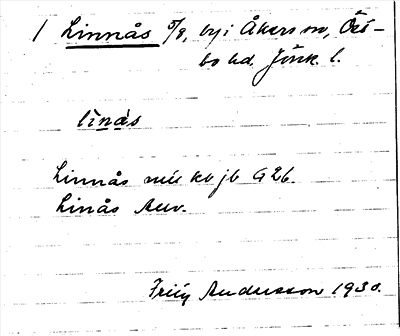 1 Linnås 5/8, by i Åkers sn, Öst-
bo hd. Jönk. l.
li̇̀nȧ̀s
Linnås mtl kb jb G 26.
Linås Auv.
Frey Andersson 1930.